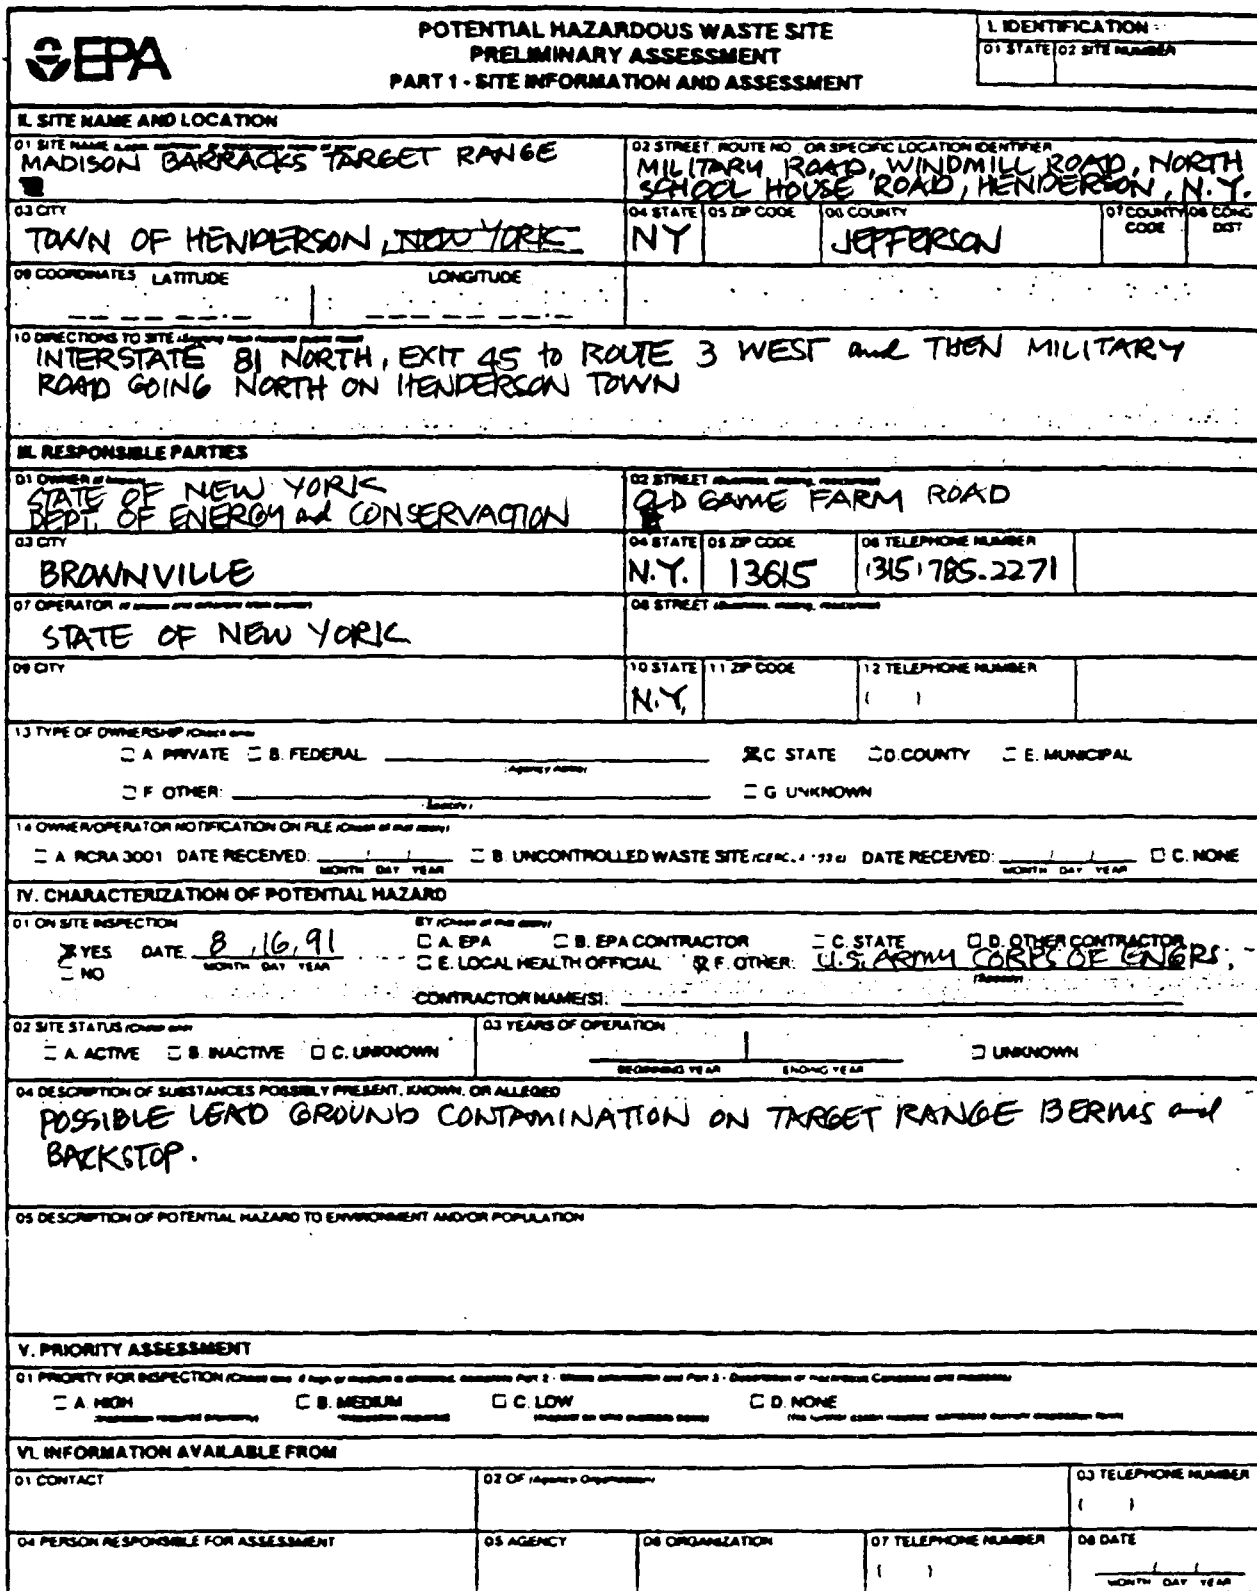 EPA
POTENTIAL HAZARDOUS WASTE SITE
PRELIMINARY ASSESSMENT
PART 1 - SITE INFORMATION AND ASSESSMENT
I. IDENTIFICATION
01 STATE 02 SITE NUMBER
II. SITE NAME AND LOCATION
01 SITE NAME
MADISON BARRACKS TARGET RANGE
02 STREET, ROUTE NO., OR SPECIFIC LOCATION IDENTIFIER
MILITARY ROAD, WINDMILL ROAD, NORTH
SCHOOL HOUSE ROAD, HENDERSON, N.Y.
03 CITY
TOWN OF HENDERSON, NEW YORK
04 STATE
NY
05 ZIP CODE
06 COUNTY
JEFFERSON
07 COUNTY CODE
08 CONG DIST
09 COORDINATES LATITUDE LONGITUDE
10 DIRECTIONS TO SITE
INTERSTATE 81 NORTH, EXIT 45 to ROUTE 3 WEST and THEN MILITARY
ROAD GOING NORTH ON HENDERSON TOWN
III. RESPONSIBLE PARTIES
01 OWNER
STATE OF NEW YORK
DEPT. OF ENERGY and CONSERVACTION
02 STREET
OLD GAME FARM ROAD
03 CITY
BROWNVILLE
04 STATE
N.Y.
05 ZIP CODE
13615
06 TELEPHONE NUMBER
(315) 785-2271
07 OPERATOR
STATE OF NEW YORK
08 STREET
09 CITY
10 STATE
N.Y.
11 ZIP CODE
12 TELEPHONE NUMBER
( )
13 TYPE OF OWNERSHIP (Check one)
A. PRIVATE B. FEDERAL (Agency name) C. STATE D. COUNTY E. MUNICIPAL
F. OTHER: (Specify) G. UNKNOWN
14 OWNER/OPERATOR NOTIFICATION ON FILE (Check all that apply)
A. RCRA 3001 DATE RECEIVED: B. UNCONTROLLED WASTE SITE DATE RECEIVED: C. NONE
MONTH DAY YEAR MONTH DAY YEAR
IV. CHARACTERIZATION OF POTENTIAL HAZARD
01 ON SITE INSPECTION
YES DATE 8/16/91
MONTH DAY YEAR
NO
BY (Check all that apply)
A. EPA B. EPA CONTRACTOR C. STATE D. OTHER CONTRACTOR
E. LOCAL HEALTH OFFICIAL F. OTHER: U.S. ARMY CORPS OF ENGRS.
(Specify)
CONTRACTOR NAME(S):
02 SITE STATUS (Check one)
A. ACTIVE B. INACTIVE C. UNKNOWN
03 YEARS OF OPERATION
BEGINNING YEAR ENDING YEAR UNKNOWN
04 DESCRIPTION OF SUBSTANCES POSSIBLY PRESENT, KNOWN, OR ALLEGED
POSSIBLE LEAD GROUND CONTAMINATION ON TARGET RANGE BERMS and
BACKSTOP.
05 DESCRIPTION OF POTENTIAL HAZARD TO ENVIRONMENT AND/OR POPULATION
V. PRIORITY ASSESSMENT
01 PRIORITY FOR INSPECTION
A. HIGH B. MEDIUM C. LOW D. NONE
VI. INFORMATION AVAILABLE FROM
01 CONTACT
02 OF (Agency/Organization)
03 TELEPHONE NUMBER
( )
04 PERSON RESPONSIBLE FOR ASSESSMENT
05 AGENCY
06 ORGANIZATION
07 TELEPHONE NUMBER
( )
08 DATE
MONTH DAY YEAR